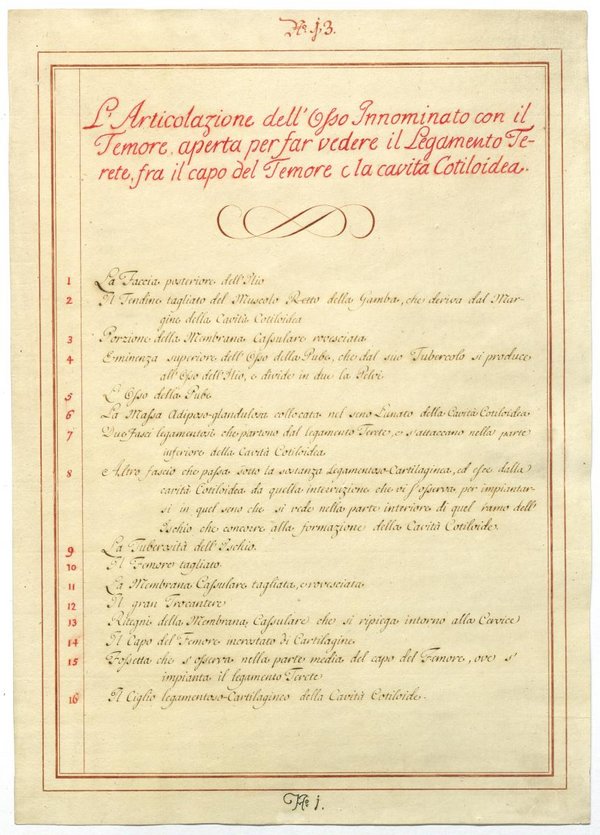 No. 13.
L'Articolazione dell'Osso Innominato con il
Femore, aperta per far vedere il Legamento Te-
rete, fra il capo del Femore e la cavità Cotiloidea.
1 La Faccia posteriore dell'Ilio
2 Il Tendine tagliato del Muscolo Retto della Gamba, che deriva dal Mar-
gine della Cavità Cotiloidea
3 Porzione della Membrana Cassulare rovesciata
4 Eminenza superiore dell'Osso della Pube, che dal suo Tubercolo si produce
all'Osso dell'Ilio, e divide in due la Pelvi
5 L'Osso della Pube
6 La Massa Adiposo-glandulosa collocata nel seno Lunato della Cavità Cotiloidea
7 Due Fasci legamentosi che partono dal legamento Terete, e s'attaccano nella parte
inferiore della Cavità Cotiloidea
8 Altro fascio che passa sotto la sostanza Legamentoso-Cartilaginea, ed esce dalla
cavità Cotiloidea da quella interruzione che vi s'osserva per impiantar-
si in quel seno che si vede nella parte interiore di quel ramo dell'
Ischio che concorre alla formazione della Cavità Cotiloide.
9 La Tuberosità dell'Ischio.
10 Il Femore tagliato
11 La Membrana Cassulare tagliata, e rovesciata
12 Il gran Trocantere
13 Ritegni della Membrana Cassulare che si ripiega intorno alla Cervice
14 Il Capo del Femore incrostato di Cartilagine
15 Fossetta che s'osserva nella parte media del capo del Femore, ove s'
impianta il legamento Terete
16 Il Ciglio legamentoso-Cartilagineo della Cavità Cotiloide.
No. 1.